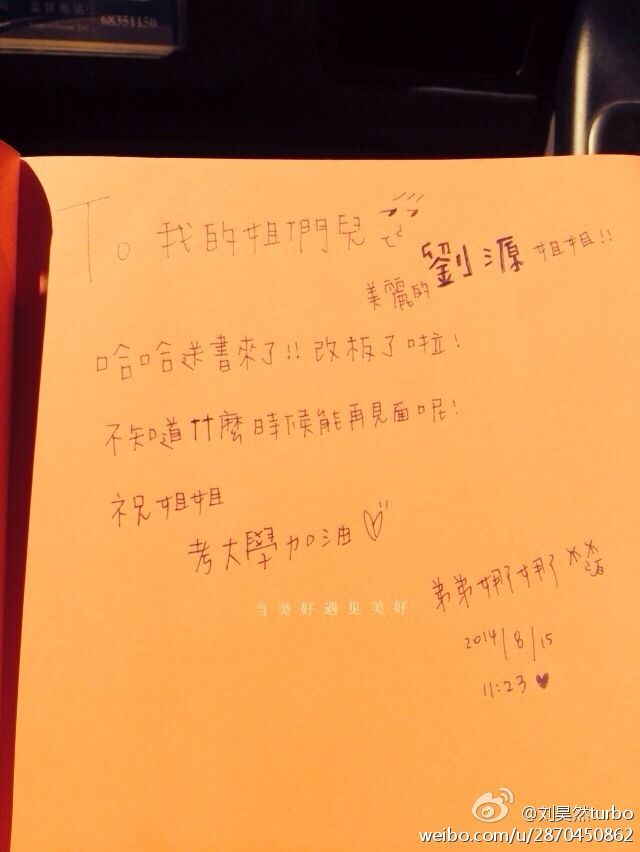 监督电话 68351150
To 我的姐們兒
美麗的劉源姐姐!!
哈哈送書來了!!改板了啦!
不知道什麼時候能再見面呢!
祝姐姐
考大學加油
弟弟娜娜
当美好遇见美好
2014/8/15
11:23
@刘昊然turbo
weibo.com/u/2870450862